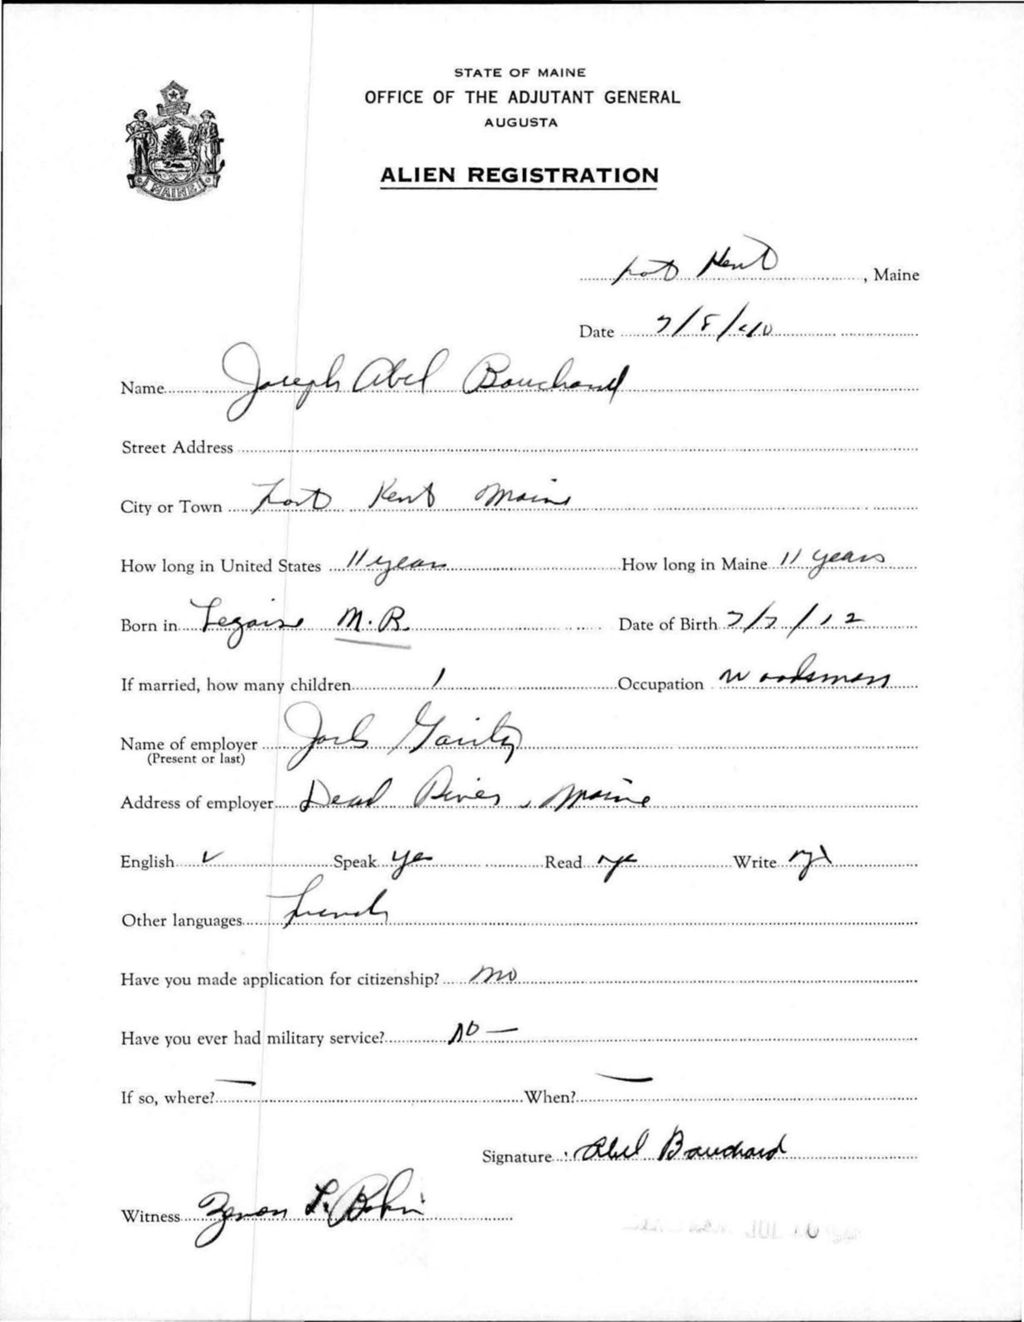 STATE OF MAINE
OFFICE OF THE ADJUTANT GENERAL
AUGUSTA
ALIEN REGISTRATION
MAINE
Fort Kent, Maine
Date 7/8/40
Name Joseph Abel Bouchard
Street Address
City or Town Fort Kent Maine
How long in United States 11 years How long in Maine 11 years
Born in M.B. Date of Birth 7/7/12
If married, how many children 1 Occupation Woodsman
Name of employer
(Present or last)
Address of employer Dead River, Maine
English ✓ Speak yes Read yes Write yes
Other languages French
Have you made application for citizenship? no
Have you ever had military service? No —
If so, where? — When? —
Signature Abel Bouchard
Witness L.